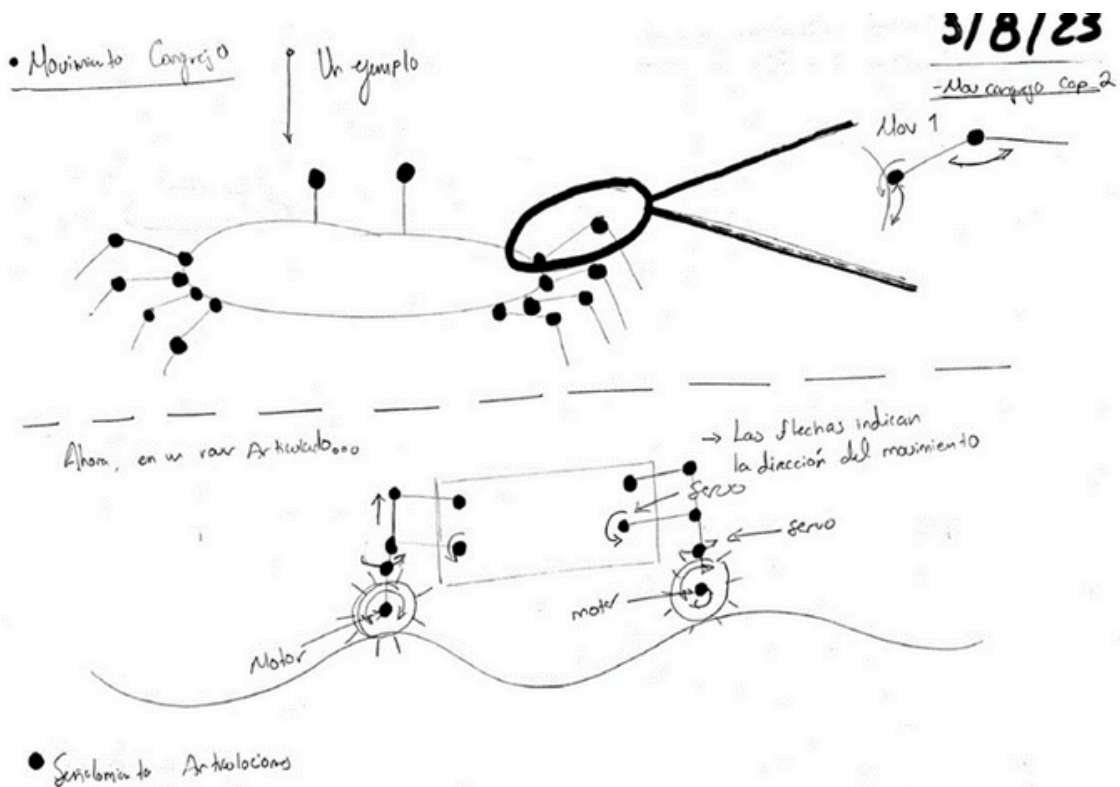 3/8/23
• Movimiento Cangrejo
Un ejemplo
-Mov cangrejo Cap_2
Mov 1
Ahora, en un rover Articulado...
→ Las flechas indican
la dirección del movimiento
servo
servo
motor
Motor
Articulaciones